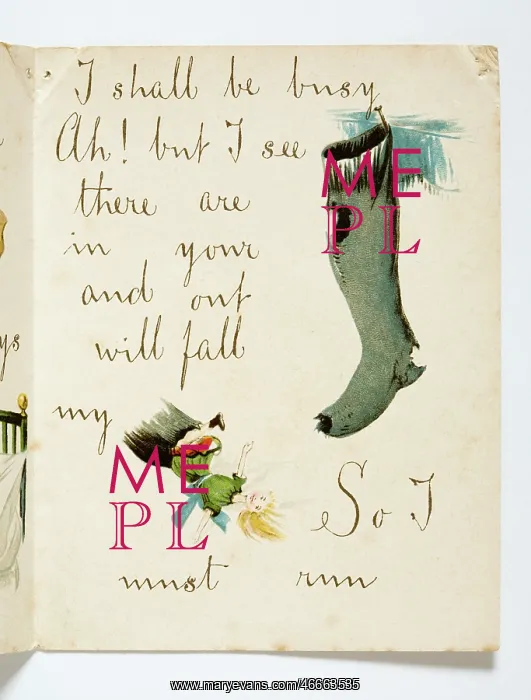 I shall be busy
Ah! but I see
there are
in your
and out
will fall
my
So I
must run
ys
ME
PL
ME
PL
www.maryevans.com/46663585